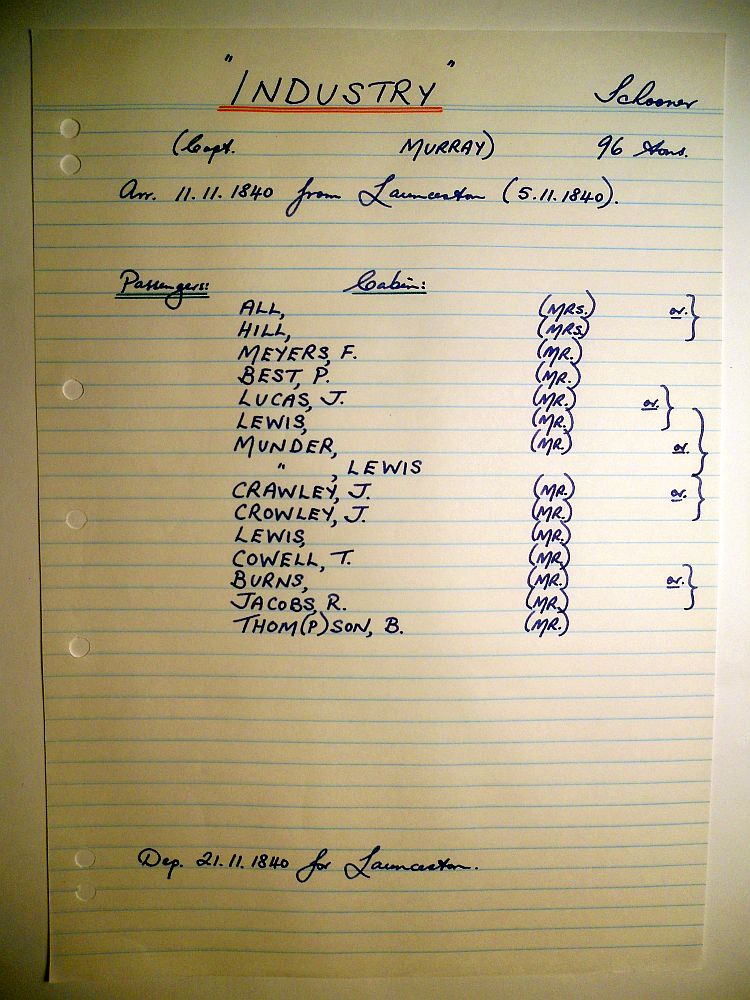 "INDUSTRY" Schooner
(Capt. MURRAY) 96 tons.
Arr. 11.11.1840 from Launceston (5.11.1840).
Passengers: Cabin:
ALL, (MRS.) or.
HILL, (MRS.)
MEYERS, F. (MR.)
BEST, P. (MR.)
LUCAS, J. (MR.) or.
LEWIS, (MR.)
MUNDER, (MR.) or.
" , LEWIS
CRAWLEY, J. (MR.) or.
CROWLEY, J. (MR.)
LEWIS, (MR.)
COWELL, T. (MR.)
BURNS, (MR.) or.
JACOBS, R. (MR.)
THOM(P)SON, B. (MR.)
Dep. 21.11.1840 for Launceston.